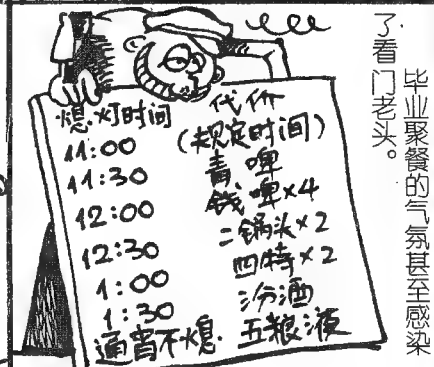 毕业聚餐的气氛甚至感染
了看门老头。
熄灯时间 代价
11:00 (规定时间)
11:30 青啤
12:00 钱啤×4
12:30 二锅头×2
1:00 四特×2
1:30 汾酒
通宵不熄. 五粮液